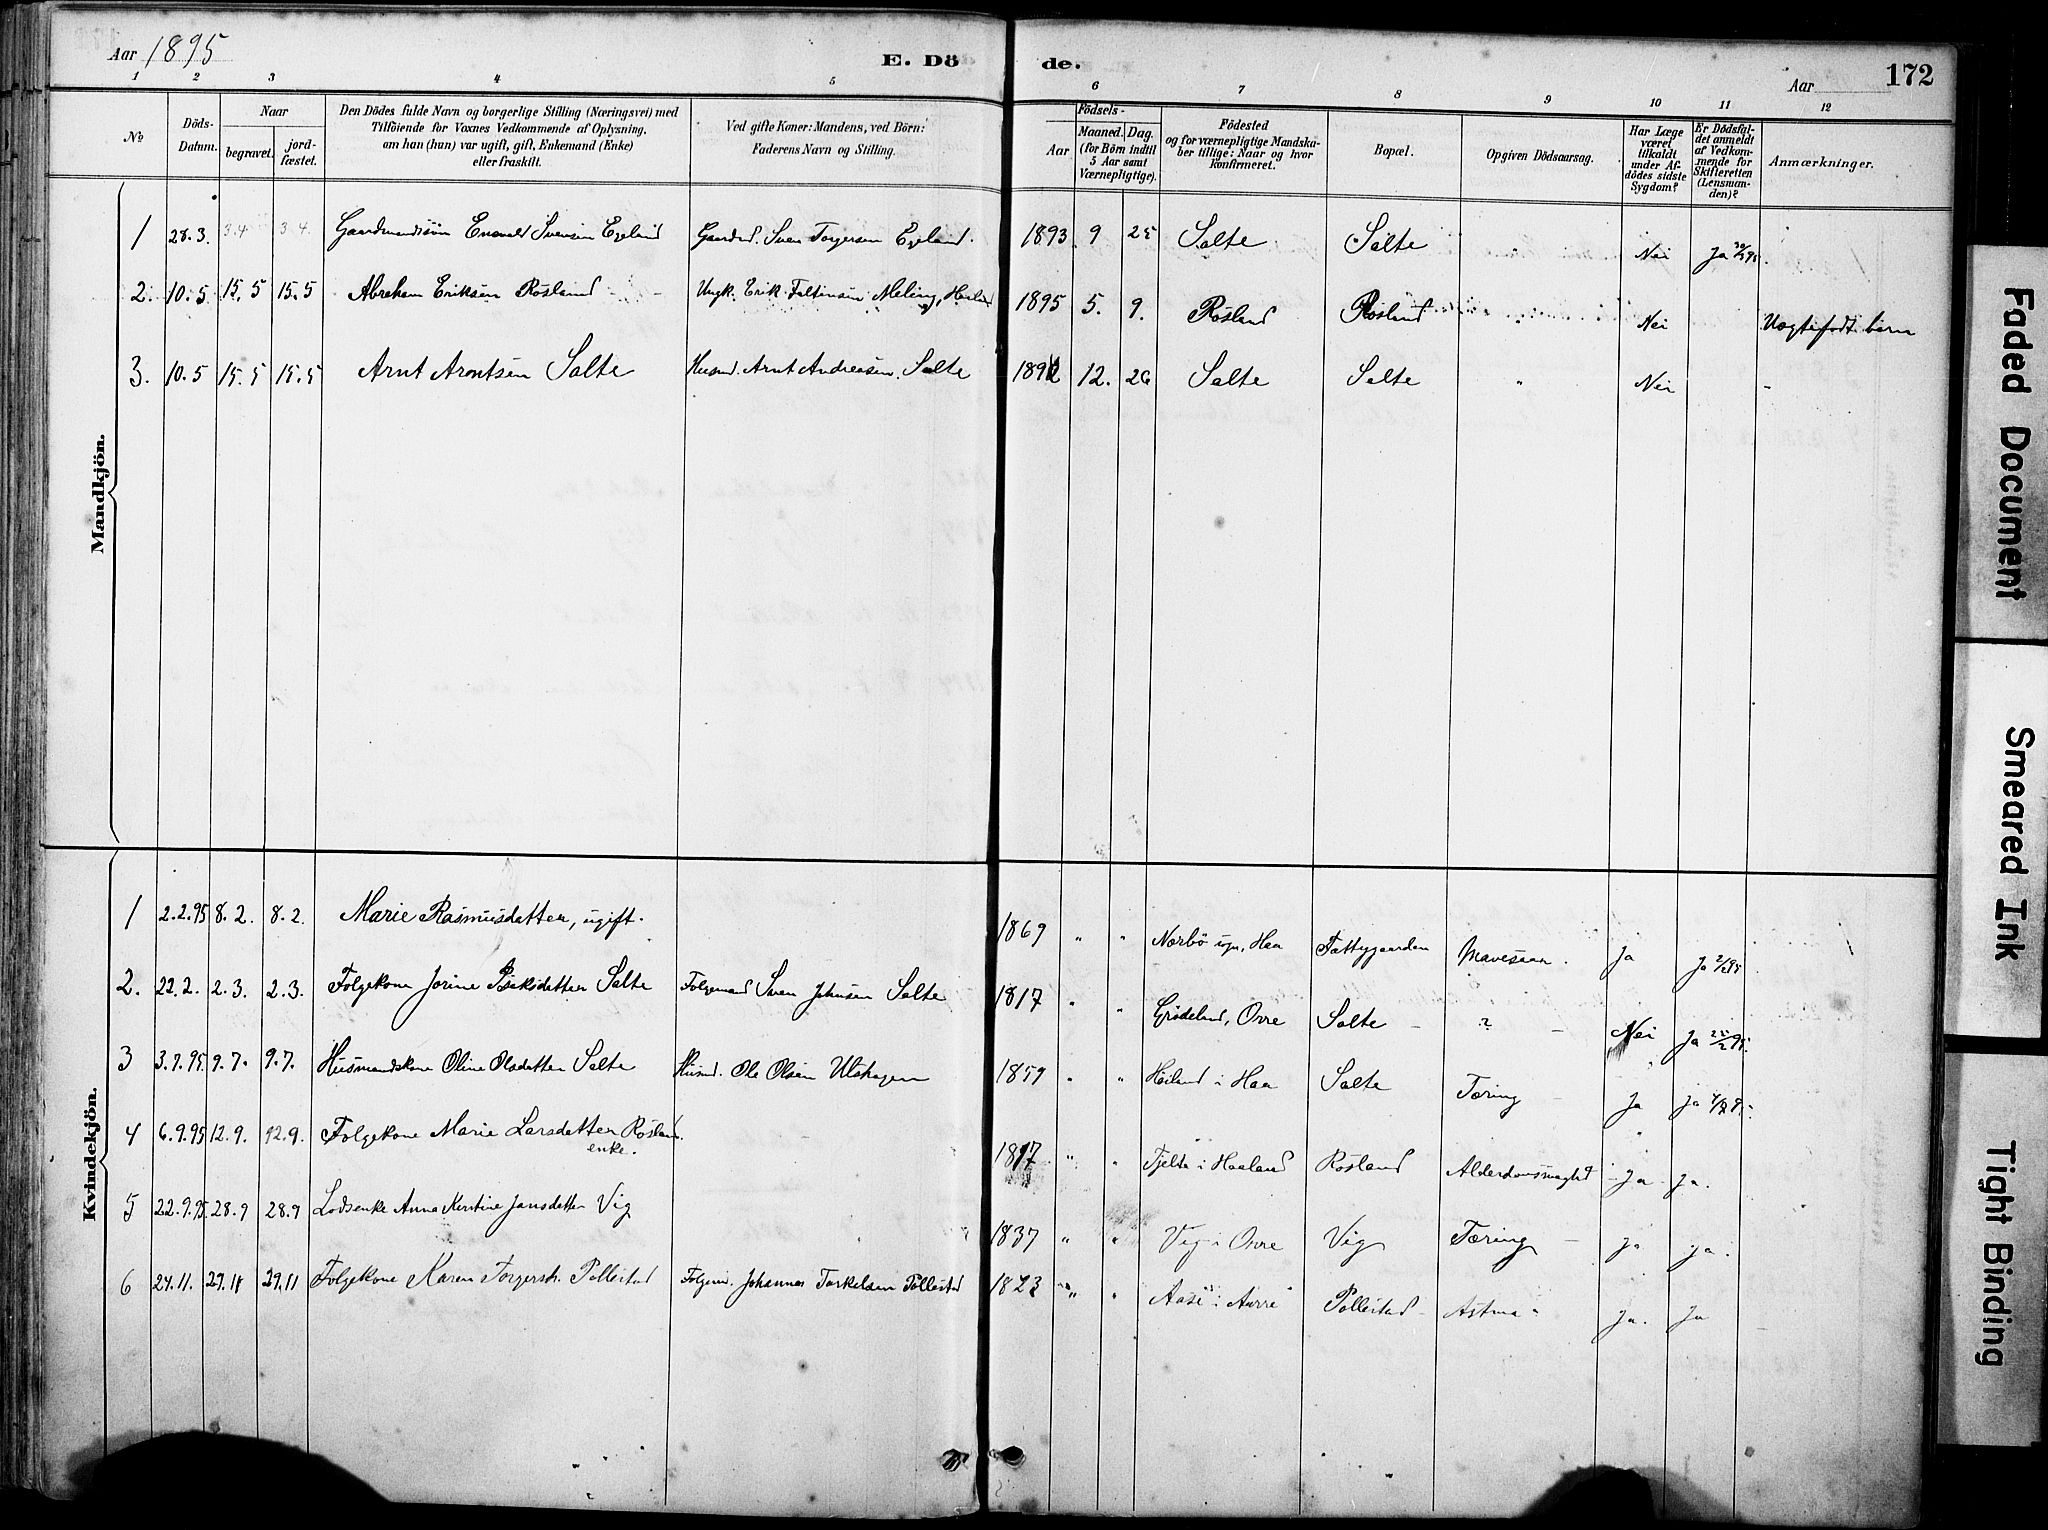 Aar 1895
E. Döde.
Aar
172
1 2 3 4 5 6 7 8 9 10 11 12
No
Döds-Datum.
Naar
begravet.
jord-fæstet.
Den Dödes fulde Navn og borgerlige Stilling (Næringsvei) med
Tilföiende for Voxnes Vedkommende af Oplysning,
om han (hun) var ugift, gift, Enkemand (Enke)
eller fraskilt.
Ved gifte Koner: Mandens, ved Börn:
Faderens Navn og Stilling.
Födsels-
Aar
Maaned. Dag.
(for Börn indtil
5 Aar samt
Værnepligtige).
Födested
og for værnepligtige Mandska-
ber tillige: Naar og hvor
konfirmeret.
Bopæl.
Opgiven Dödsaarsag.
Har Læge
været
tilkaldt
under Af-
dödes sidste
Sygdom?
Er Dödsfal-
det anmeldt
af Vedkom-
mende for
Skifteretten
(Lensman-
den)?
Anmærkninger.
Mandkjön.
1 28.3. 3.4 3.4. Gaardmandssön Svensen Egeland Gaardmd. Sven Torgersen Egeland. 1893 9 25 Salte Salte Nei Ja
2. 10.5. 15.5 15.5 Abraham Eriksen Rosland Ungk. Erik Meling, 1895 5. 9. Rosland Rosland " Nei Uægtefödt barn
3. 10.5 15.5 15.5 Arnt Arntsen Salte Husmd. Arnt Andreasen Salte 1892 12. 26 Salte Salte " Nei -
Kvindekjön.
1 2.2.95 8.2. 8.2. Marie Rasmusdatter, ugift. 1869 " " Nærbö sogn, Haa Fattiggaarden Mavesaar. Ja Ja 2/2 95
2. 22.2. 2.3. 2.3. Folgekone Jorine Salte Folgemand Sven Johnsen Salte 1817 " " Grödeland, Orre Salte - ? - Nei Ja 25/2 95.
3 3.7.95. 9.7. 9.7. Husmandskone Oline Olsdatter Salte Husmd. Ole Olsen 1859 " " Höiland i Haa Salte Tæring - Ja Ja
4 6.9.95 12.9. 12.9. Folgekone Marie Larsdatter Rosland.
enke.
1817 " " Tjelta i Haaland Rosland Alderdomssvaghed Ja Ja.
5 22.9.95. 28.9 28.9 Lodsenke Anna Kirstine Jansdatter Vig 1837 " " Vig i Orre Vig Tæring - Ja Ja.
6 24.11. 29.11 29.11 Folgekone Karen Torgersd. Pollestad Folgemd. Johannes Torkelsen Pollestad 1823 " " Aase i Pollestad Astma Ja. Ja
Faded Document
Smeared Ink
Tight Binding